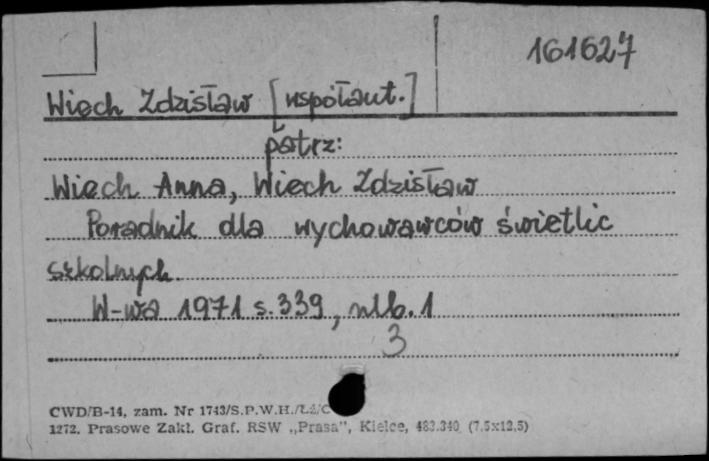 161627
Wiech Zdzisław [współaut.]
patrz:
Wiech Anna, Wiech Zdzisław
Poradnik dla wychowawców świetlic
szkolnych
W-wa 1971 s. 339, nlb. 1
3
CWD/B-14, zam. Nr 1743/S.P.W.H./Łź/C
1272. Prasowe Zakł. Graf. RSW „Prasa", Kielce, 483.340 (7.5x12.5)